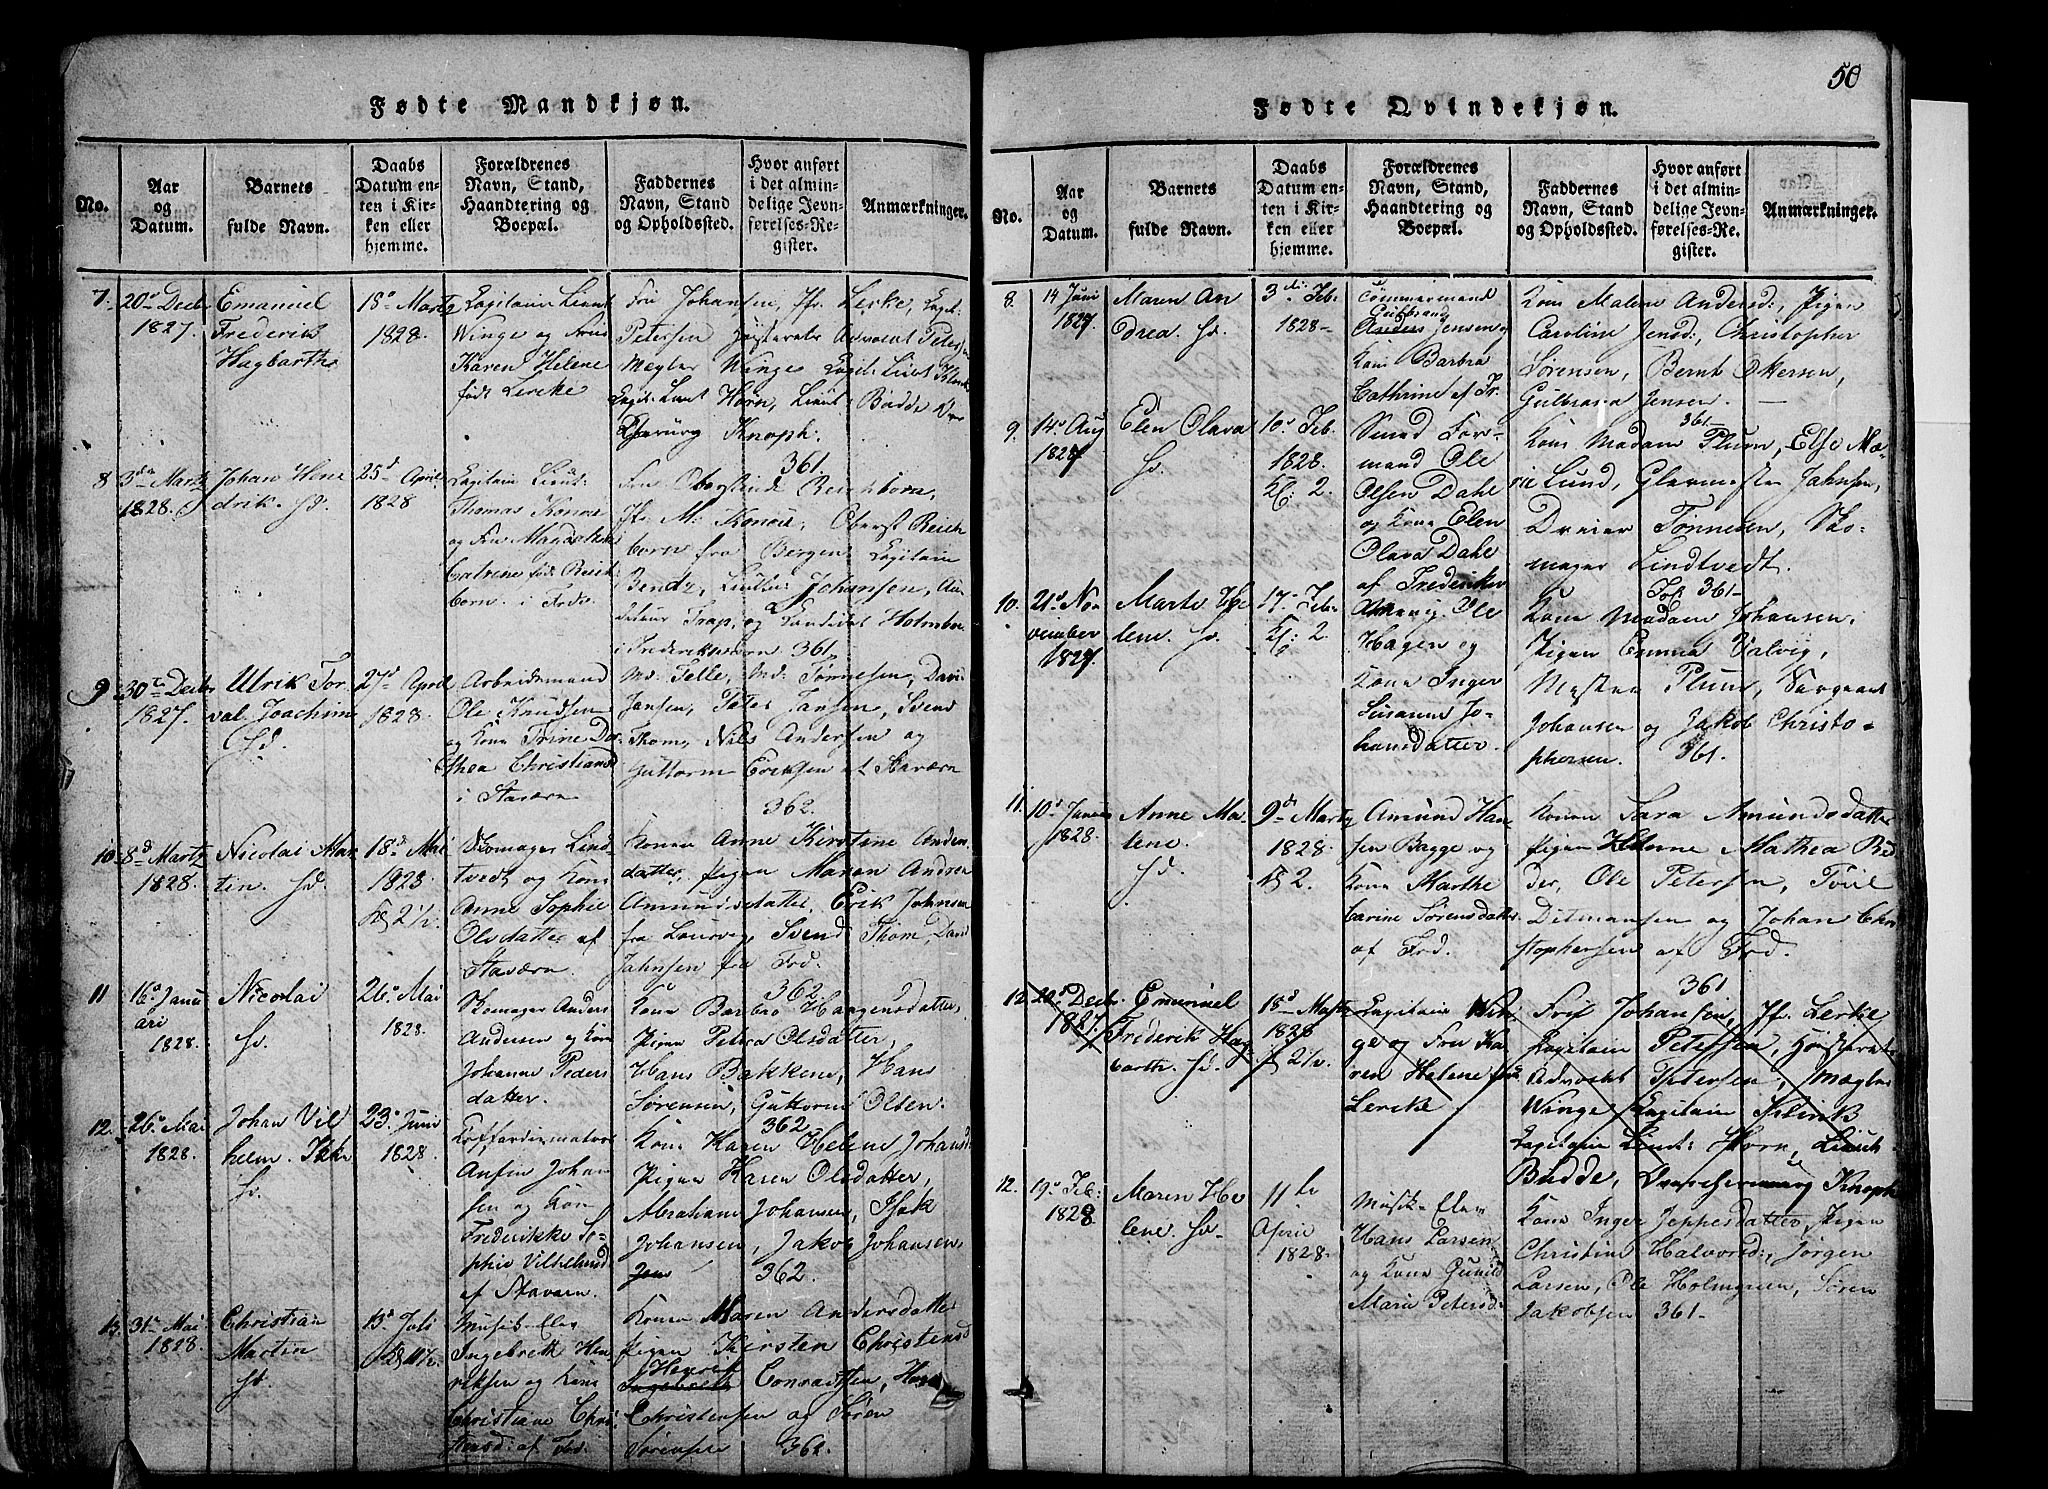 50
Fødte Mandkjøn.
No.
Aar og Datum.
Barnets fulde Navn.
Daabs Datum enten i Kirken eller hjemme.
Forældrenes Navn, Stand, Haandtering og Boepæl.
Faddernes Navn, Stand og Opholdssted.
Hvor anført i det almindelige Jevnførelses-Register.
Anmærkninger.
7. 20de Decbr 1827.
Emanuel Frederik Hagbarth
18de Martz 1828.
Capitain Lieut Winge og Frue Karen Helene født Lercke
Fru Johansen, Jfr. Lerke, Capit:
Petersen Høisterets Advocat Petersen
Megler Winge Capit:
Capit: Lieut Horn, Lieut Budde
Knoph.
361.
8 3de Martz 1828.
Johan Hendrik. hd.
25d April 1828
Capitain Lieut: Thomas Konow og Fru Magdalene Catrene født Reichborn. i Frdv.
Fru Oberstinde Reichborn,
Jfr. M: Konow, Oberst Reichborn fra Bergen, Capitain
Bentz, Lieutn: Johansen, Auditeur Trap, og Candidat Holmboe
i Frederiksværn 361.
9 30te Decbr 1827.
Ulrik Torval Joachim hd.
27d April 1828.
Arbeidsmand Ole Knudsen og Kone Trine Dorthea Christiansd i Staværn
Md. Telle, Md: Tørnesen, David
Jansen, Peter Jansen, Svend
Thom, Nils Andersen og
Guttorm Eriksen af Staværn
362.
10. 8d Martz 1828.
Nicolai Martin. hd.
18d Mai 1828
2 1/2.
Skomager Lindtvedt og Kone Anne Sophie Olsdatter af Staværn.
Konen Anne Kirstine Andersdatter, Pigen Maren Andrea
Amundsdatter, Erik Johnsen
fra Laurvig, Svend Thom, David
Jahnsen fra Frd.
362
11 16de Januari 1828.
Nicolai hd.
26de Mai 1828.
Skomager Anders Andersen og Kone Johanne Pedersdatter.
Kone Barbro Haagensdatter,
Pigen Petra Olsdatter,
Hans Bakkene, Hans
Sørensen, Guttorm Olsen.
362
12. 26de Mai 1828.
Johan Vilhelm. hd.
23de Juni 1828.
Coffardimatros Anfin Johansen og Kone Frederikke Sophie Vilhelmsd af Stavern.
Kone Karen Helene Johansd
Pigen Karen Olsdatter,
Abraham Johansen, Isak
Johansen, Jakob Johansen,
362.
13. 31te Mai 1828.
Christian Martin hd.
13d Juli
Musik Elev Ingebrett Henriksen og Kone Christiane Christensd: af Frd.
Konen Maren Andersdatter
Pigen Kirsten Christensd
Henrik Conradsen, Hans
Christensen og Søren
Sørensen 362.
Fødte Qvindekjøn.
No.
Aar og Datum.
Barnets fulde Navn.
Daabs Datum enten i Kirken eller hjemme.
Forældrenes Navn, Stand, Haandtering og Boepæl.
Faddernes Navn, Stand og Opholdssted.
Hvor anført i det almindelige Jevnførelses-Register.
Anmærkninger.
8. 14 Juni 1827.
Maren Andrea. hd.
3die Feb. 1828
Tømmermand Gulbrand Jensen og Kone Barbra Cathrine af Fr.
Kone Malene Andersd:, Pigen
Caroline Jensd:, Christopher
Sørensen, Bernt Okersen,
Gulbrand Jensen.
361
9. 14de Aug 1827
Elen Olava hd.
10de Feb. 1828. Kl: 2.
Smed Formand Ole Olsen Dahl og Kone Elen Olava Dahl af Frederiksværn.
Kone Madam Plum, Else Marie Lund, Glarmester Jahnsen,
Dreier Tønnesen, Skomager Lindtvedt.
361
10. 21de November 1827.
Marte Helene. hd.
17de Febr. Kl: 2.
Ole Hagen og Kone Inger Susanne Johansdatter.
Kone Madam Johansen,
Pigen Emma Valvig,
Mester Plum, Sargeant
Johansen og Jakob Christophersen. 361.
11. 10d Januar 1828.
Anne Malene. hd.
9de Martz 1828. Kl 2.
Amund Hansen Bagge og Kone Marthe Carine Sørensdatter af Frd.
Konen Sara Amundsdatter
Pigen Anne Mathea
Ole Petersen,
Ditmansen og Johan Christophersen af Frd.
361
12. 20d Decbr. 1827.
Emanuel Frederik Hagbarth. hd.
18d Martz 1828 2 1/2.
Capitain Winge og Fru Karen Helene født Lercke.
Fru Johansen, Jfr. Lerke
Capitain Petersen, Høisterets
Advocat Petersen, Mægler
Winge Capitain
Capitain Lieut: Horn, Lieut:
Budde, Knoph
12. 19de Feb: 1828
Maren Helene. hd.
11te April 1828.
Musik-Elev Hans Larsen og Kone Gunild Marie Petersd
Kone Inger Jeppesdatter, Pigen
Christine Halvorsd:, Jørgen
Larsen, Ole Holmgreen, Søren
Jakobsen 361.